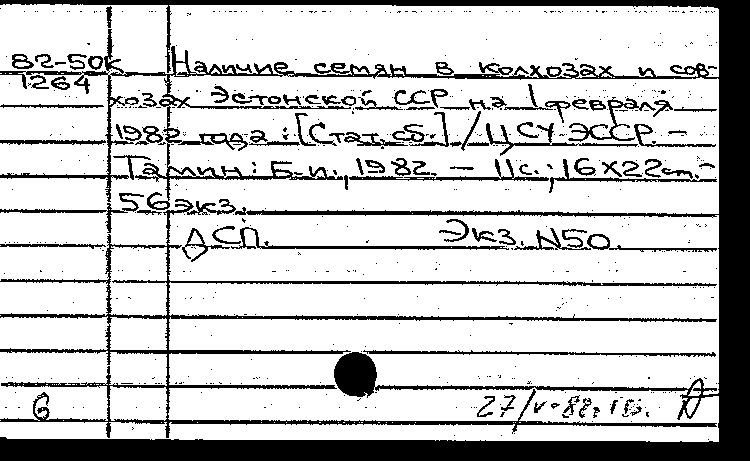 82-50к Наличие семян в колхозах и сов-
1264
хозах Эстонской ССР на 1 февраля
1982 года : [Стат. сб.] / ЦСУ ЭССР. –
Таллин : Б.и., 1982. – 11 с. ; 16 X 22 см. –
56 экз.
ДСП. Экз. N50.
27/V-82г.